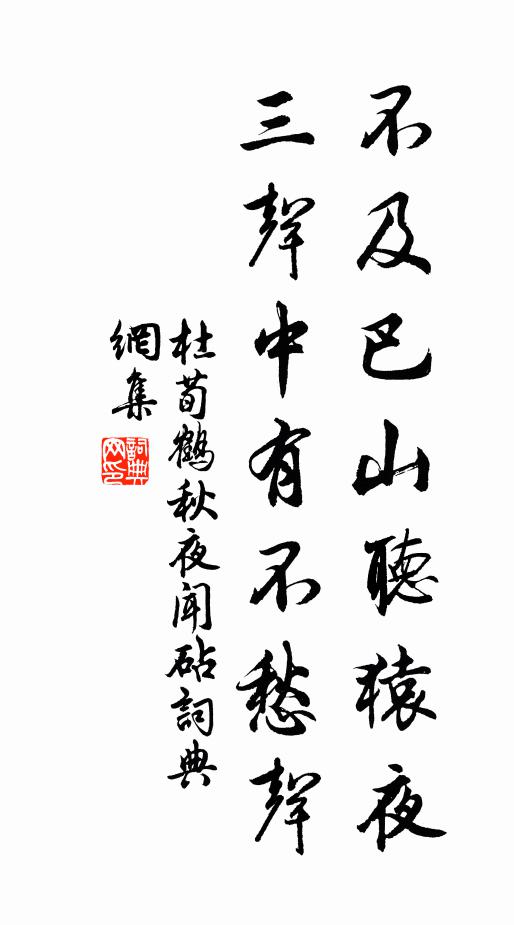 不及巴山聽猿夜
三聲中有不愁聲
杜荀鶴秋夜聞砧詞典
網集
詞典
网印